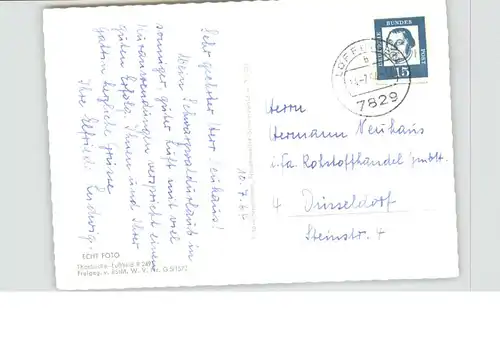 10.7.64
Sehr geehrter Herr Neuhaus!
Mein Schwarzwaldurlaub in
sonniger, guter Luft mit viel
verspricht einen
guten Erfolg. Ihnen und Ihrer
Gattin herzliche Grüsse
Ihre Elfriede Ludwig.
ECHT FOTO
Freigeg. d.
LÖFFINGEN
7829
DEUTSCHE BUNDESPOST
15
Herrn
Hermann Neuhaus
i. Fa. Rohstoffhandel GmbH.
4 Düsseldorf
Steinstr. 4